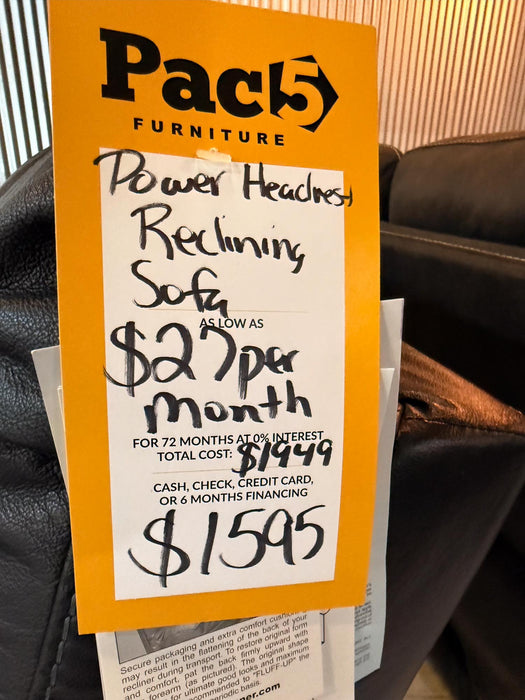 Pac5
FURNITURE
Power Headrest
Reclining
Sofa
AS LOW AS
$27 per
month
FOR 72 MONTHS AT 0% INTEREST
TOTAL COST: $1949
CASH, CHECK, CREDIT CARD,
OR 6 MONTHS FINANCING
$1595
Secure packaging and extra comfort
may result in the flattening of the back of your
recliner during transport. To restore original form
and comfort, pat the back firmly upward with
and forearm (as pictured). The original shape
for ultimate good looks and maximum
to "FLUFF UP" the
periodic basis.
ner.com